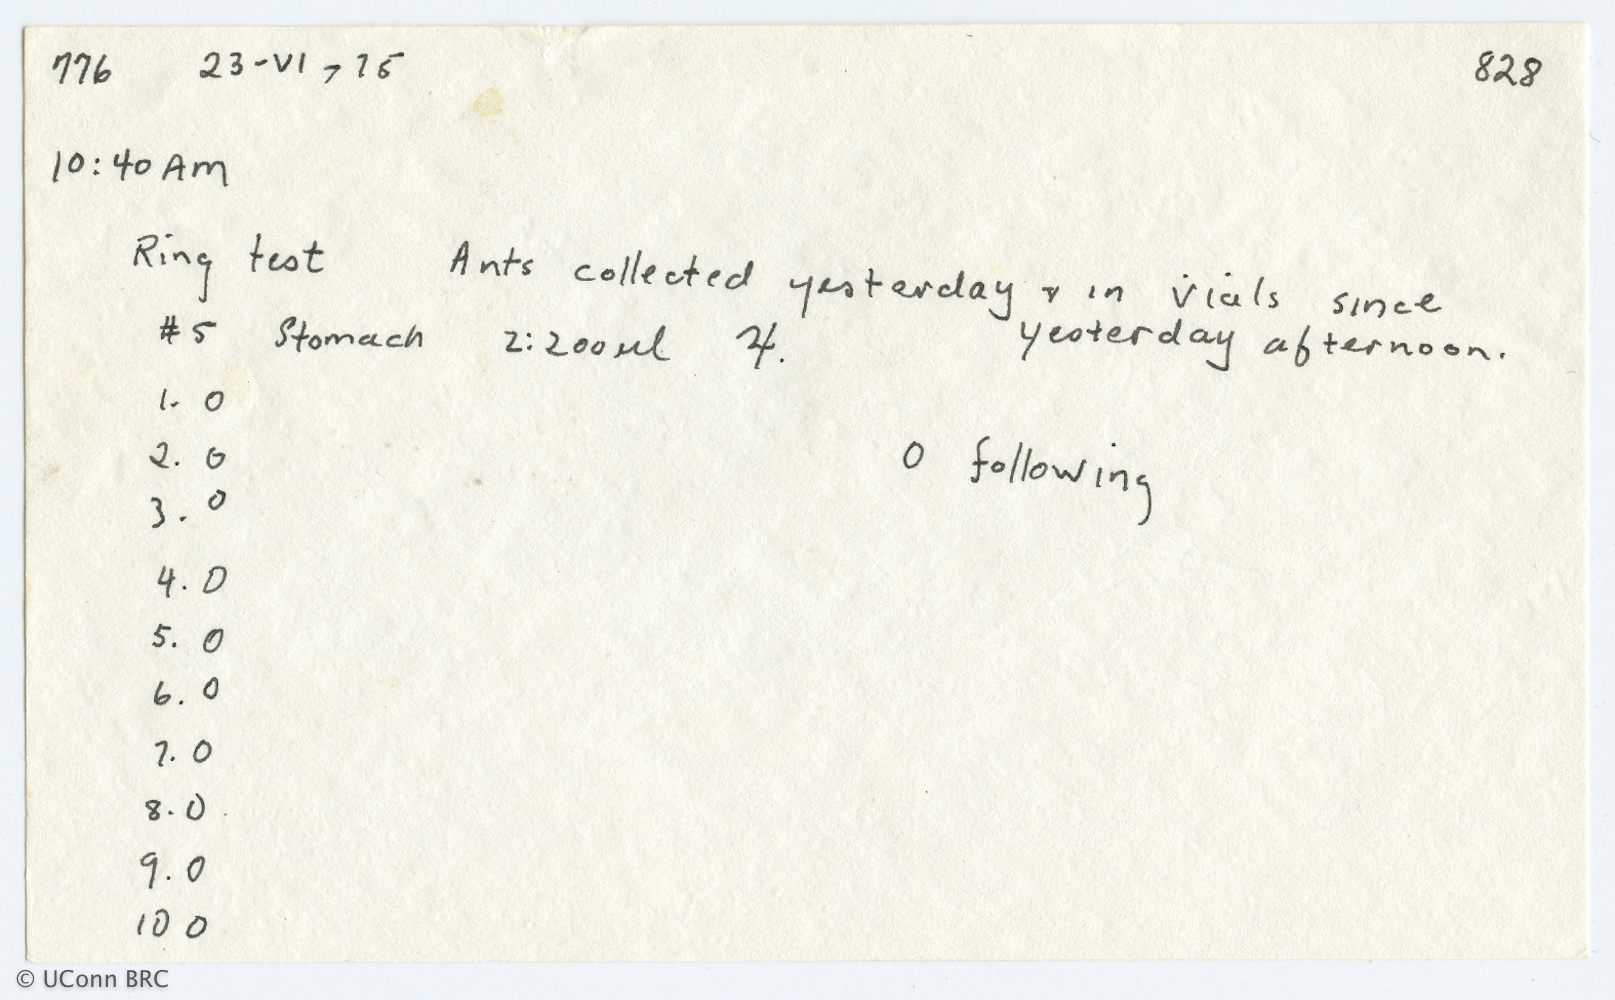 776 23-VI-75 828
10:40 AM
Ring test Ants collected yesterday + in vials since
yesterday afternoon.
#5 Stomach 2:200 µl
1. 0
2. 0
0 following
3. 0
4. 0
5. 0
6. 0
7. 0
8. 0
9. 0
10 0
© UConn BRC